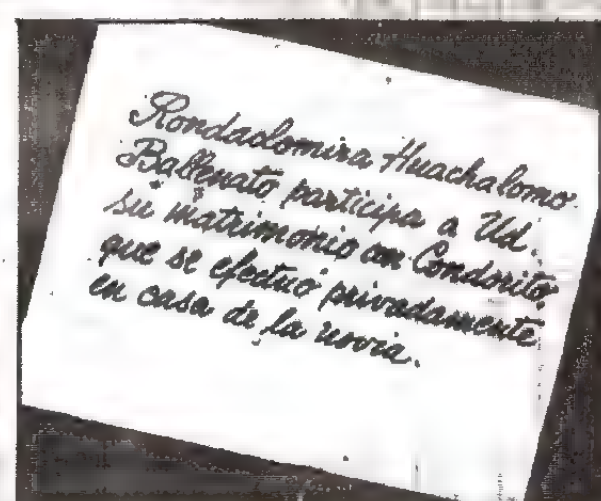 Rondadomira Huachalomo
Ballenato participa a Ud.
su matrimonio con Condorito,
que se efectuó privadamente
en casa de la novia.